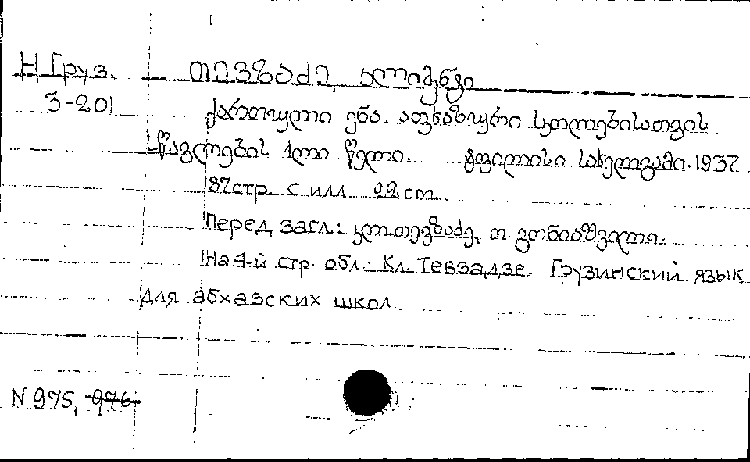 Н Груз. თევზაძე, კლიმენტი
3-201 ქართული ენა. აფხაზური სკოლებისათვის
სწავლების 1ლი წელი. ტფილისი სახელგამი. 1937
87стр. с илл 22 cm.
Перед загл.: კლ. თევზაძე, თ გონიაშვილი.
На 4-й стр. обл.: Кл. Тевзадзе. Грузинский язык
для абхазских школ
N 975, 976